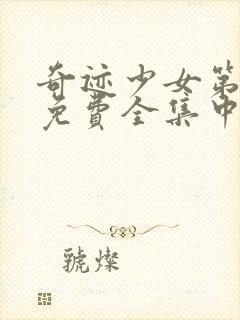 奇迹少女第
免費全集中
號燦